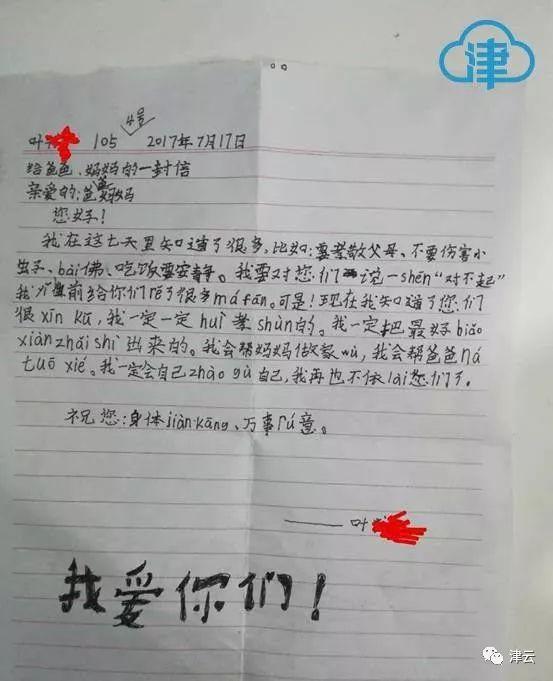 津
4号
叶 105 2017年7月17日
给爸爸、妈妈的一封信
亲爱的:爸爸妈妈
您好!
我在这七天里知道了很多,比如:要孝敬父母、不要伤害小
虫子、bài佛、吃饭要安静。我要对您们说一shēn"对不起"
我以前给你们了很多má fán。可是!现在我知道了您们
很xīn kǔ,我一定一定huì孝shùn的。我一定把最好biǎo
xiàn zhǎi shì出来的。我会帮妈妈做家wù,我会帮爸爸ná
tuō xié。我一定会自己zhào gù自己,我再也不依lài您们了。
祝您:身体jiàn kāng、万事rú意。
——叶
我爱你们!
津云